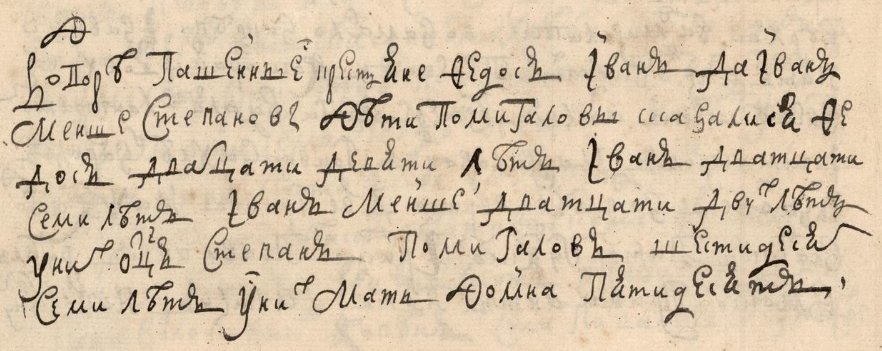 Пашенные крестьяне Ѳедосъ Иванъ да Иванъ
Менше Степановы дѣти Помигаловы сказались Ѳе
досъ дватцати девяти лѣтъ Иванъ дватцати
семи лѣтъ Иванъ Менше дватцати двух лѣтъ
у них оцъ Степанъ Помигаловъ шестидесят
семи лѣтъ у них мать Домна пятидесятъ